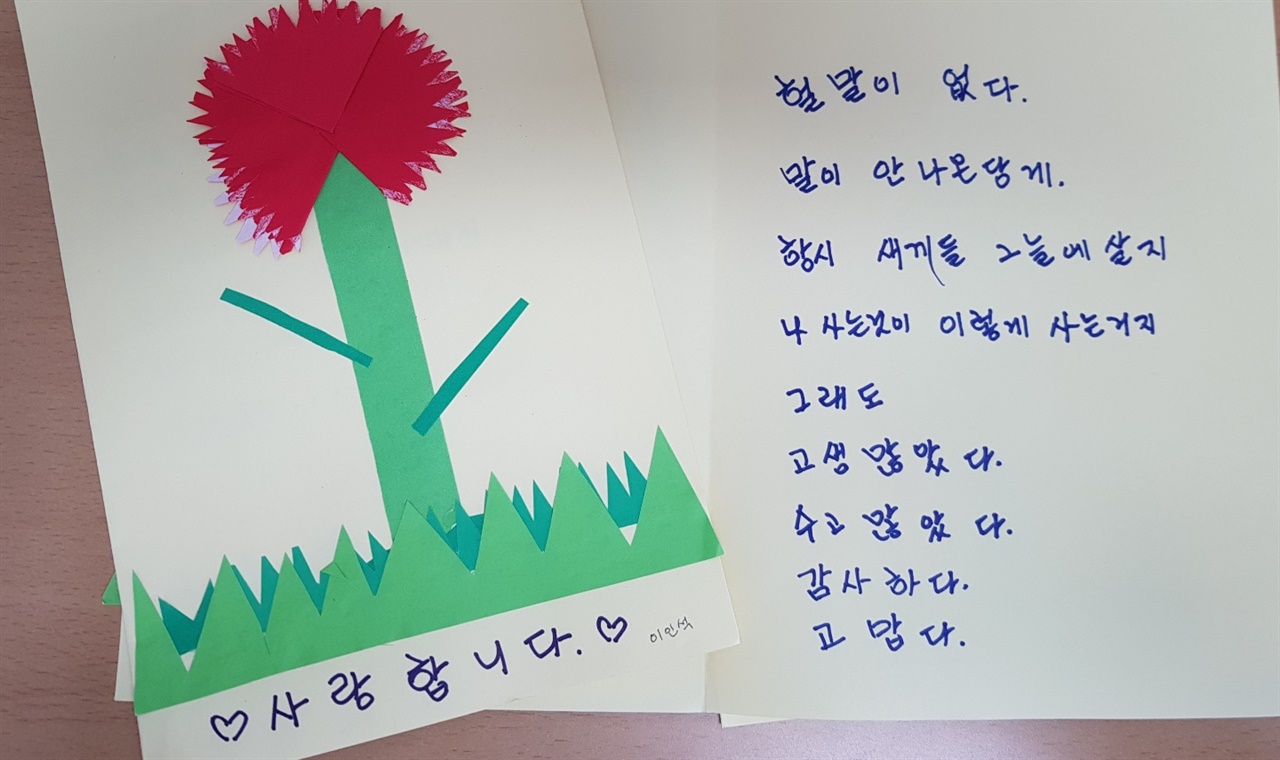 ♡ 사랑합니다. ♡
이인석
헐 말이 없다.
말이 안나온당게.
항시 새끼들 그늘에 살지
나 사는것이 이렇게 사는거지
그래도
고생 많았다.
수고 많았다.
감사하다.
고맙다.